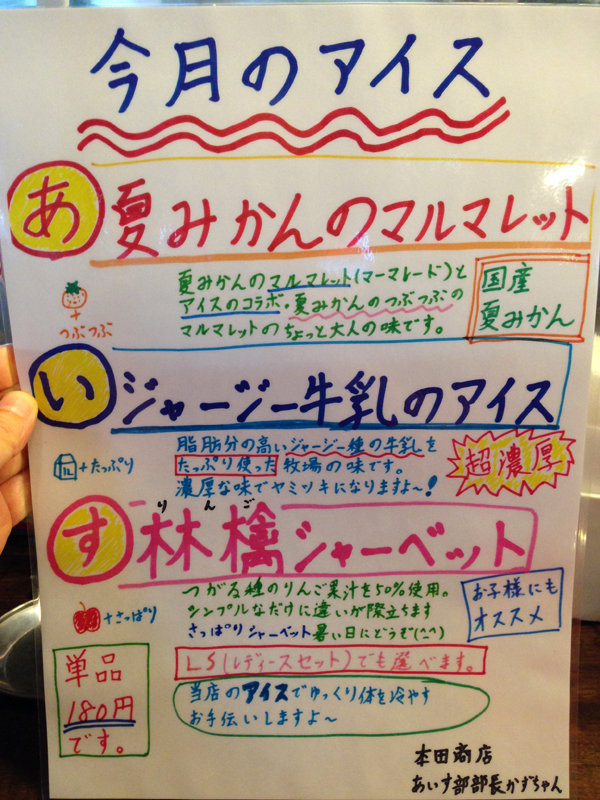 今月のアイス
あ 夏みかんのマルマレット
夏みかんのマルマレット(マーマレード)と
アイスのコラボ。夏みかんのつぶつぶの
マルマレットのちょっと大人の味です。
+
つぶつぶ
国産
夏みかん
い ジャージー牛乳のアイス
脂肪分の高いジャージー種の牛乳を
たっぷり使った牧場の味です。
濃厚な味でヤミツキになりますよ〜!
+たっぷり
超濃厚
りんご
す 林檎シャーベット
つがる種のりんご果汁を50%使用。
シンプルなだけに違いが際立ちます
さっぱりシャーベット暑い日にどうぞ(^^)
+さっぱり
お子様にも
オススメ
LS(レディースセット)でも選べます。
単品
180円
です。
当店のアイスでゆっくり体を冷やす
お手伝いしますよ〜
本田商店
あいす部部長かずちゃん